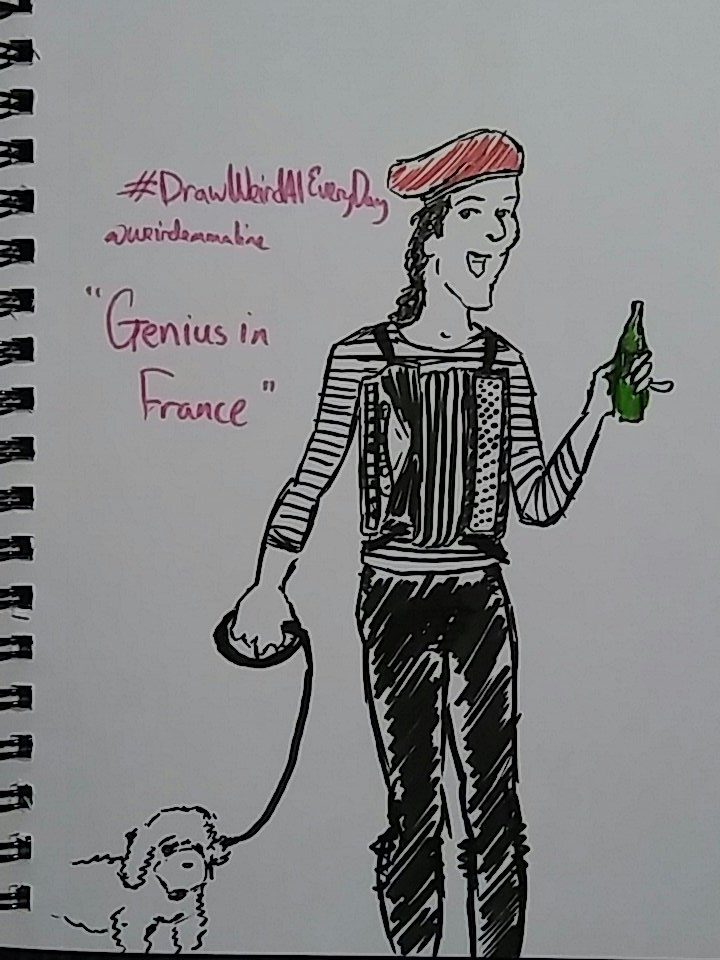 #DrawWeirdAlEveryDay
@weirdemmaline
"Genius in
France"